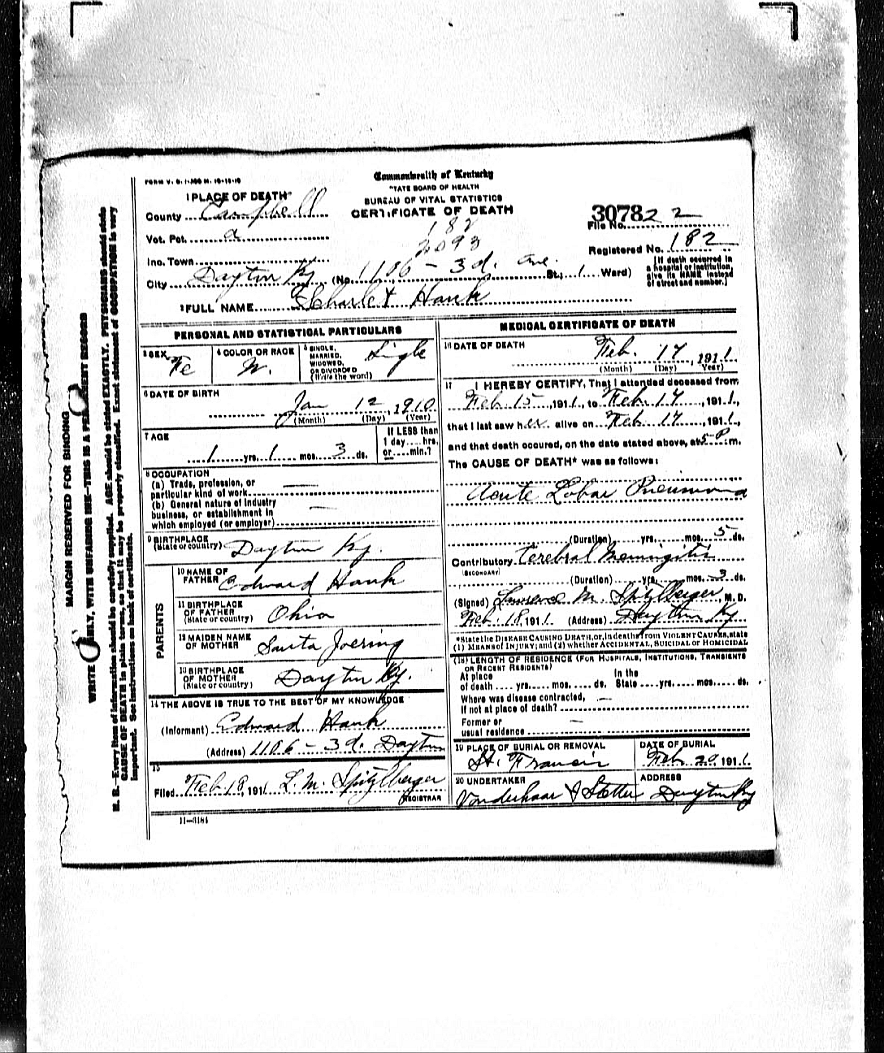 FORM V. S. 1-
Commonwealth of Kentucky
TATE BOARD OF HEALTH
BUREAU OF VITAL STATISTICS
CERTIFICATE OF DEATH
1 PLACE OF DEATH
County Campbell
Vot. Pct. a
Inc. Town
City Dayton Ky. (No. 1106 - 3d. Ave. St., 1 Ward)
182
2093
30782 2
File No.
Registered No. 182
[If death occurred in a hospital or institution, give its NAME instead of street and number.]
2 FULL NAME Hank
PERSONAL AND STATISTICAL PARTICULARS
3 SEX Fe
4 COLOR OR RACE W.
5 SINGLE, MARRIED, WIDOWED, OR DIVORCED (Write the word) Sigle
6 DATE OF BIRTH
Jan 12, 1910
(Month) (Day) (Year)
7 AGE
1 yrs. 1 mos. 3 ds.
If LESS than 1 day....hrs. or....min.?
8 OCCUPATION
(a) Trade, profession, or particular kind of work —
(b) General nature of industry business, or establishment in which employed (or employer) —
9 BIRTHPLACE
(State or country) Dayton Ky.
PARENTS
10 NAME OF FATHER Edward Hank
11 BIRTHPLACE OF FATHER (State or country) Ohio
12 MAIDEN NAME OF MOTHER Joering
13 BIRTHPLACE OF MOTHER (State or country) Dayton Ky.
14 THE ABOVE IS TRUE TO THE BEST OF MY KNOWLEDGE
(Informant) Edward Hank
(Address) 1106 - 3d. Dayton
15
Filed Feb 18, 1911 L. M. Spitzlberger
REGISTRAR
11—3184
MEDICAL CERTIFICATE OF DEATH
16 DATE OF DEATH
Feb. 17 1911
(Month) (Day) Year)
17 I HEREBY CERTIFY, That I attended deceased from
Feb 15, 1911, to Feb 17, 1911,
that I last saw her alive on Feb 17, 1911,
and that death occured, on the date stated above, at 5 P m.
The CAUSE OF DEATH* was as follows:
Acute Lobar Pneumonia
(Duration) yrs. mos. 5 ds.
Contributory Cerebral Meningitis
(SECONDARY)
(Duration) yrs. mos. 3 ds.
(Signed) Lawrence M. Spitzlberger, M. D.
Feb. 18, 1911 (Address) Dayton Ky
*State the DISEASE CAUSING DEATH, or, in deaths from VIOLENT CAUSES, state
(1) MEANS of INJURY; and (2) whether ACCIDENTAL, SUICIDAL or HOMICIDAL
(18) LENGTH OF RESIDENCE (FOR HOSPITALS, INSTITUTIONS, TRANSIENTS OR RECENT RESIDENTS)
At place of death .... yrs. .... mos. .... ds. In the State .... yrs. .... mos. .... ds.
Where was disease contracted, —
If not at place of death?
Former or usual residence —
19 PLACE OF BURIAL OR REMOVAL
St. Francis
DATE OF BURIAL
Feb. 20, 1911.
20 UNDERTAKER
Vonderhaar & Stetter
ADDRESS
Dayton Ky
MARGIN RESERVED FOR BINDING
WRITE NLY, WITH UNFADING INK—THIS IS A PE NT RECORD
N. B.—Every item of information should be carefully supplied. AGE should be stated EXACTLY. PHYSICIANS should state
CAUSE OF DEATH in plain terms, so that it may be properly classified. Exact statement of OCCUPATION is very
important. See instructions on back of certificate.